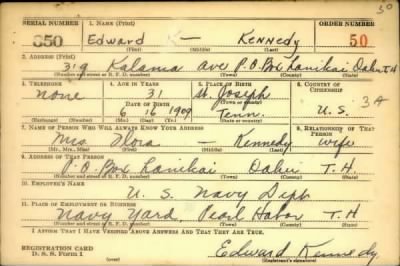 50
SERIAL NUMBER 1. NAME (Print) ORDER NUMBER
850 Edward — Kennedy 50
(First) (Middle) (Last)
2. ADDRESS (Print)
319 Kalama Ave P.O. Box Lanikai Oahu T.H
(Number and street or R. F. D. number) (Town) (County) (State)
3. TELEPHONE 4. AGE IN YEARS 5. PLACE OF BIRTH 6. COUNTRY OF CITIZENSHIP
None 31 St. Joseph 3A
DATE OF BIRTH (Town or county)
6 16 1909 Tenn. U. S.
(Exchange) (Number) (Mo.) (Day) (Yr.) (State or country)
7. NAME OF PERSON WHO WILL ALWAYS KNOW YOUR ADDRESS 8. RELATIONSHIP OF THAT PERSON
Mrs Flora — Kennedy wife
(Mr., Mrs., Miss) (First) (Middle) (Last)
9. ADDRESS OF THAT PERSON
P.O. Box Lanikai Oahu T. H.
(Number and street or R. F. D. number) (Town) (County) (State)
10. EMPLOYER'S NAME
U. S. Navy Dept
11. PLACE OF EMPLOYMENT OR BUSINESS
Navy Yard, Pearl Habor T. H
(Number and street or R. F. D. number) (Town) (County) (State)
I AFFIRM THAT I HAVE VERIFIED ABOVE ANSWERS AND THAT THEY ARE TRUE.
REGISTRATION CARD
D. S. S. Form 1
Edward Kennedy
(Registrant's signature)